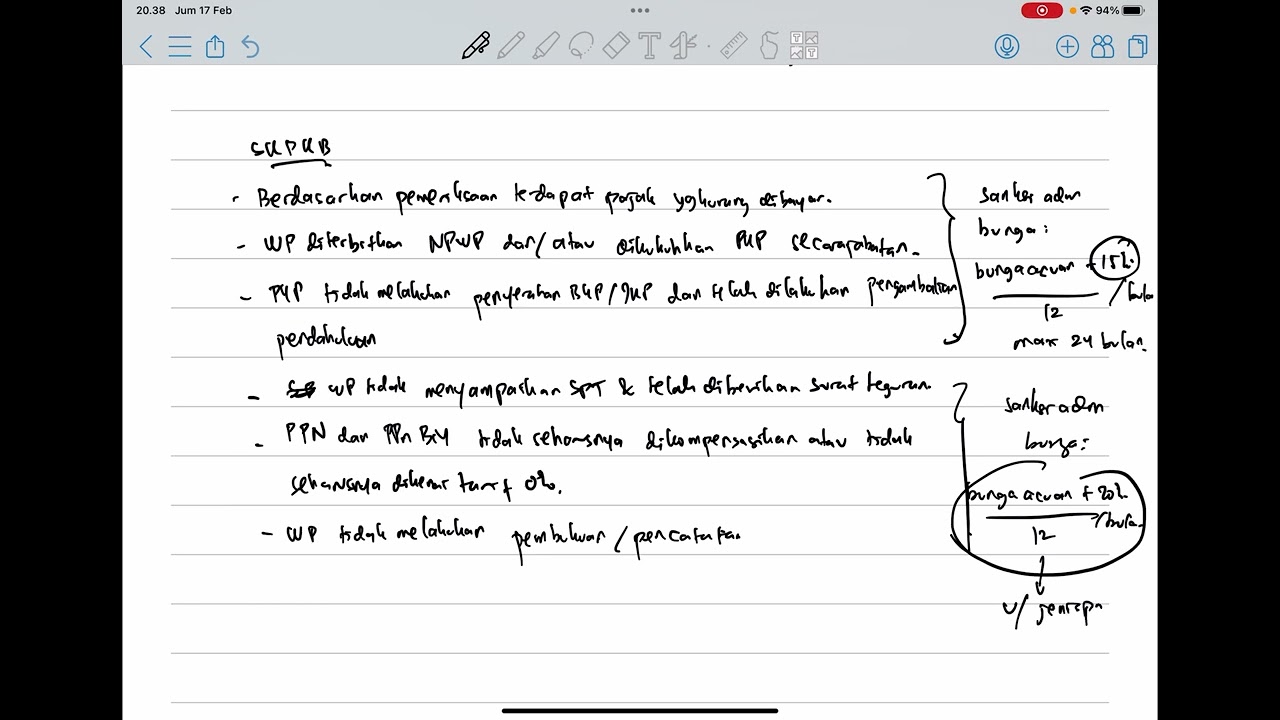 20.38 Jum 17 Feb
94%
SKPKB
- Berdasarkan pemeriksaan terdapat pajak yg kurang dibayar.
- WP diterbitkan NPWP dan/atau dikukuhkan PKP secara jabatan.
- PKP tidak melakukan penyerahan BKP/JKP dan telah dilakukan pengembalian
pendahuluan
- WP tidak menyampaikan SPT & telah diberikan surat teguran.
- PPN dan PPn BM tidak seharusnya dikompensasikan atau tidak
seharusnya dikenai tarif 0%.
- WP tidak melakukan pembukuan/pencatatan
sanksi adm
bunga:
bunga acuan + 15%
/bulan
12
max 24 bulan.
sanksi adm
bunga:
bunga acuan + 20%
/bulan
12
u/